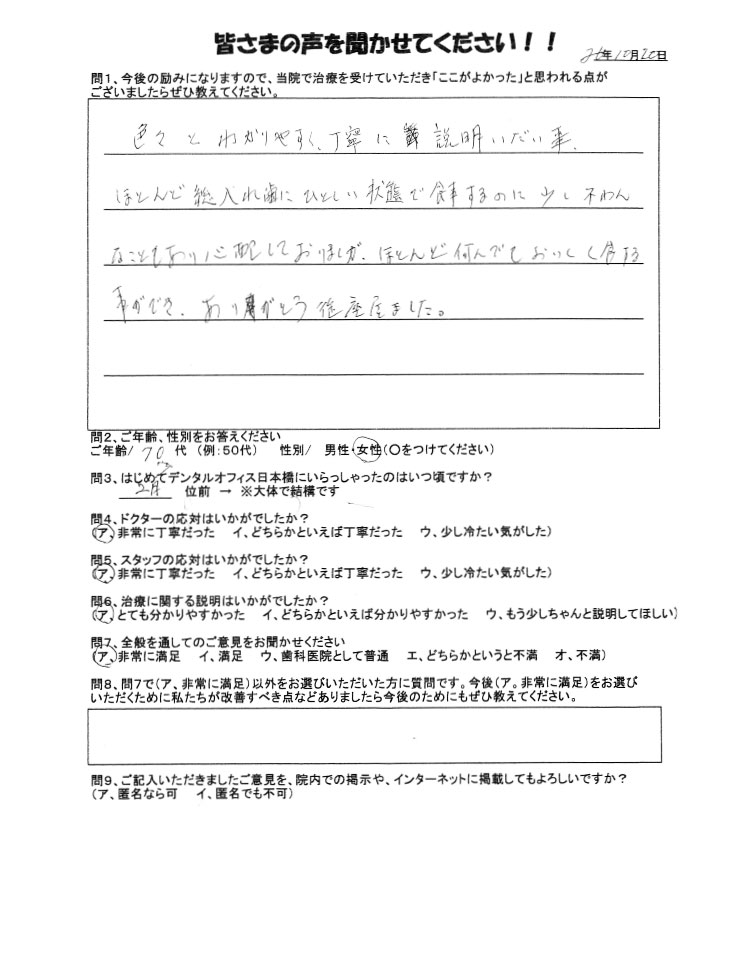 皆さまの声を聞かせてください！！
26年10月20日
問1、今後の励みになりますので、当院で治療を受けていただき「ここがよかった」と思われる点が
ございましたらぜひ教えてください。
色々とわかりやすく、丁寧に説明いだい事、
ほとんど総入れ歯にひとしい状態で食事するのに少し不わん
なこともあり心配しておりましが、ほとんど何んでもおいしく食する
事ができ、ありがとう御座居ました。
問2、ご年齢、性別をお答えください
ご年齢/ 70 代 （例：50代） 性別/ 男性・女性（〇をつけてください）
問3、はじめてデンタルオフィス日本橋にいらっしゃったのはいつ頃ですか？
位前 → ※大体で結構です
問4、ドクターの応対はいかがでしたか？
（ア、非常に丁寧だった イ、どちらかといえば丁寧だった ウ、少し冷たい気がした）
問5、スタッフの応対はいかがでしたか？
（ア、非常に丁寧だった イ、どちらかといえば丁寧だった ウ、少し冷たい気がした）
問6、治療に関する説明はいかがでしたか？
（ア、とても分かりやすかった イ、どちらかといえば分かりやすかった ウ、もう少しちゃんと説明してほしい）
問7、全般を通してのご意見をお聞かせください
（ア、非常に満足 イ、満足 ウ、歯科医院として普通 エ、どちらかというと不満 オ、不満）
問8、問7で（ア、非常に満足）以外をお選びいただいた方に質問です。今後（ア。非常に満足）をお選び
いただくために私たちが改善すべき点などありましたら今後のためにもぜひ教えてください。
問9、ご記入いただきましたご意見を、院内での掲示や、インターネットに掲載してもよろしいですか？
（ア、匿名なら可 イ、匿名でも不可）